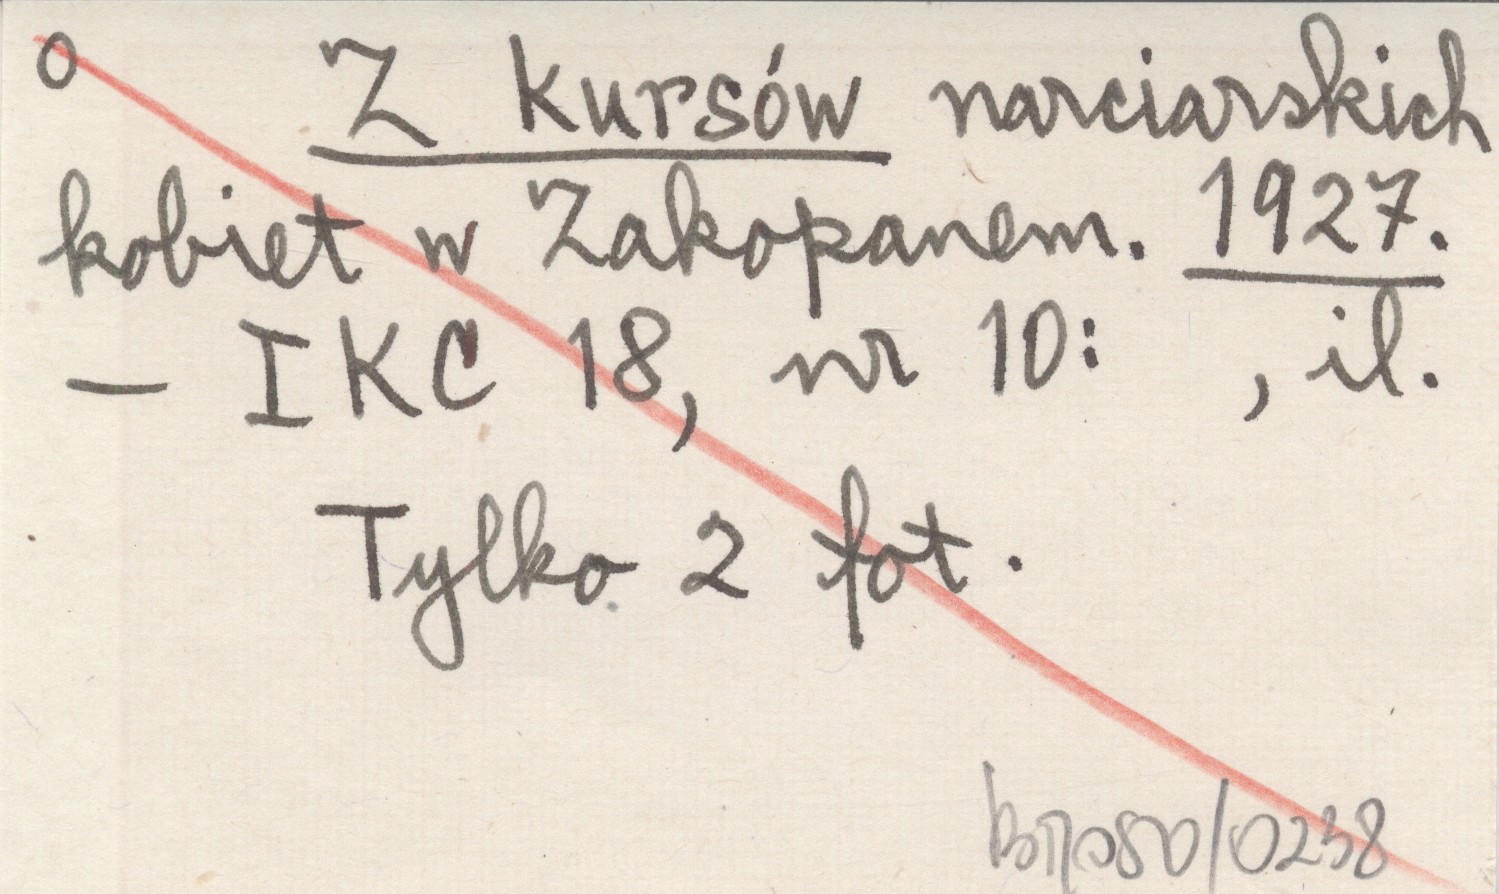 o Z kursów narciarskich
kobiet w Zakopanem. 1927.
— IKC 18, nr 10: , il.
Tylko 2 fot.
/0238